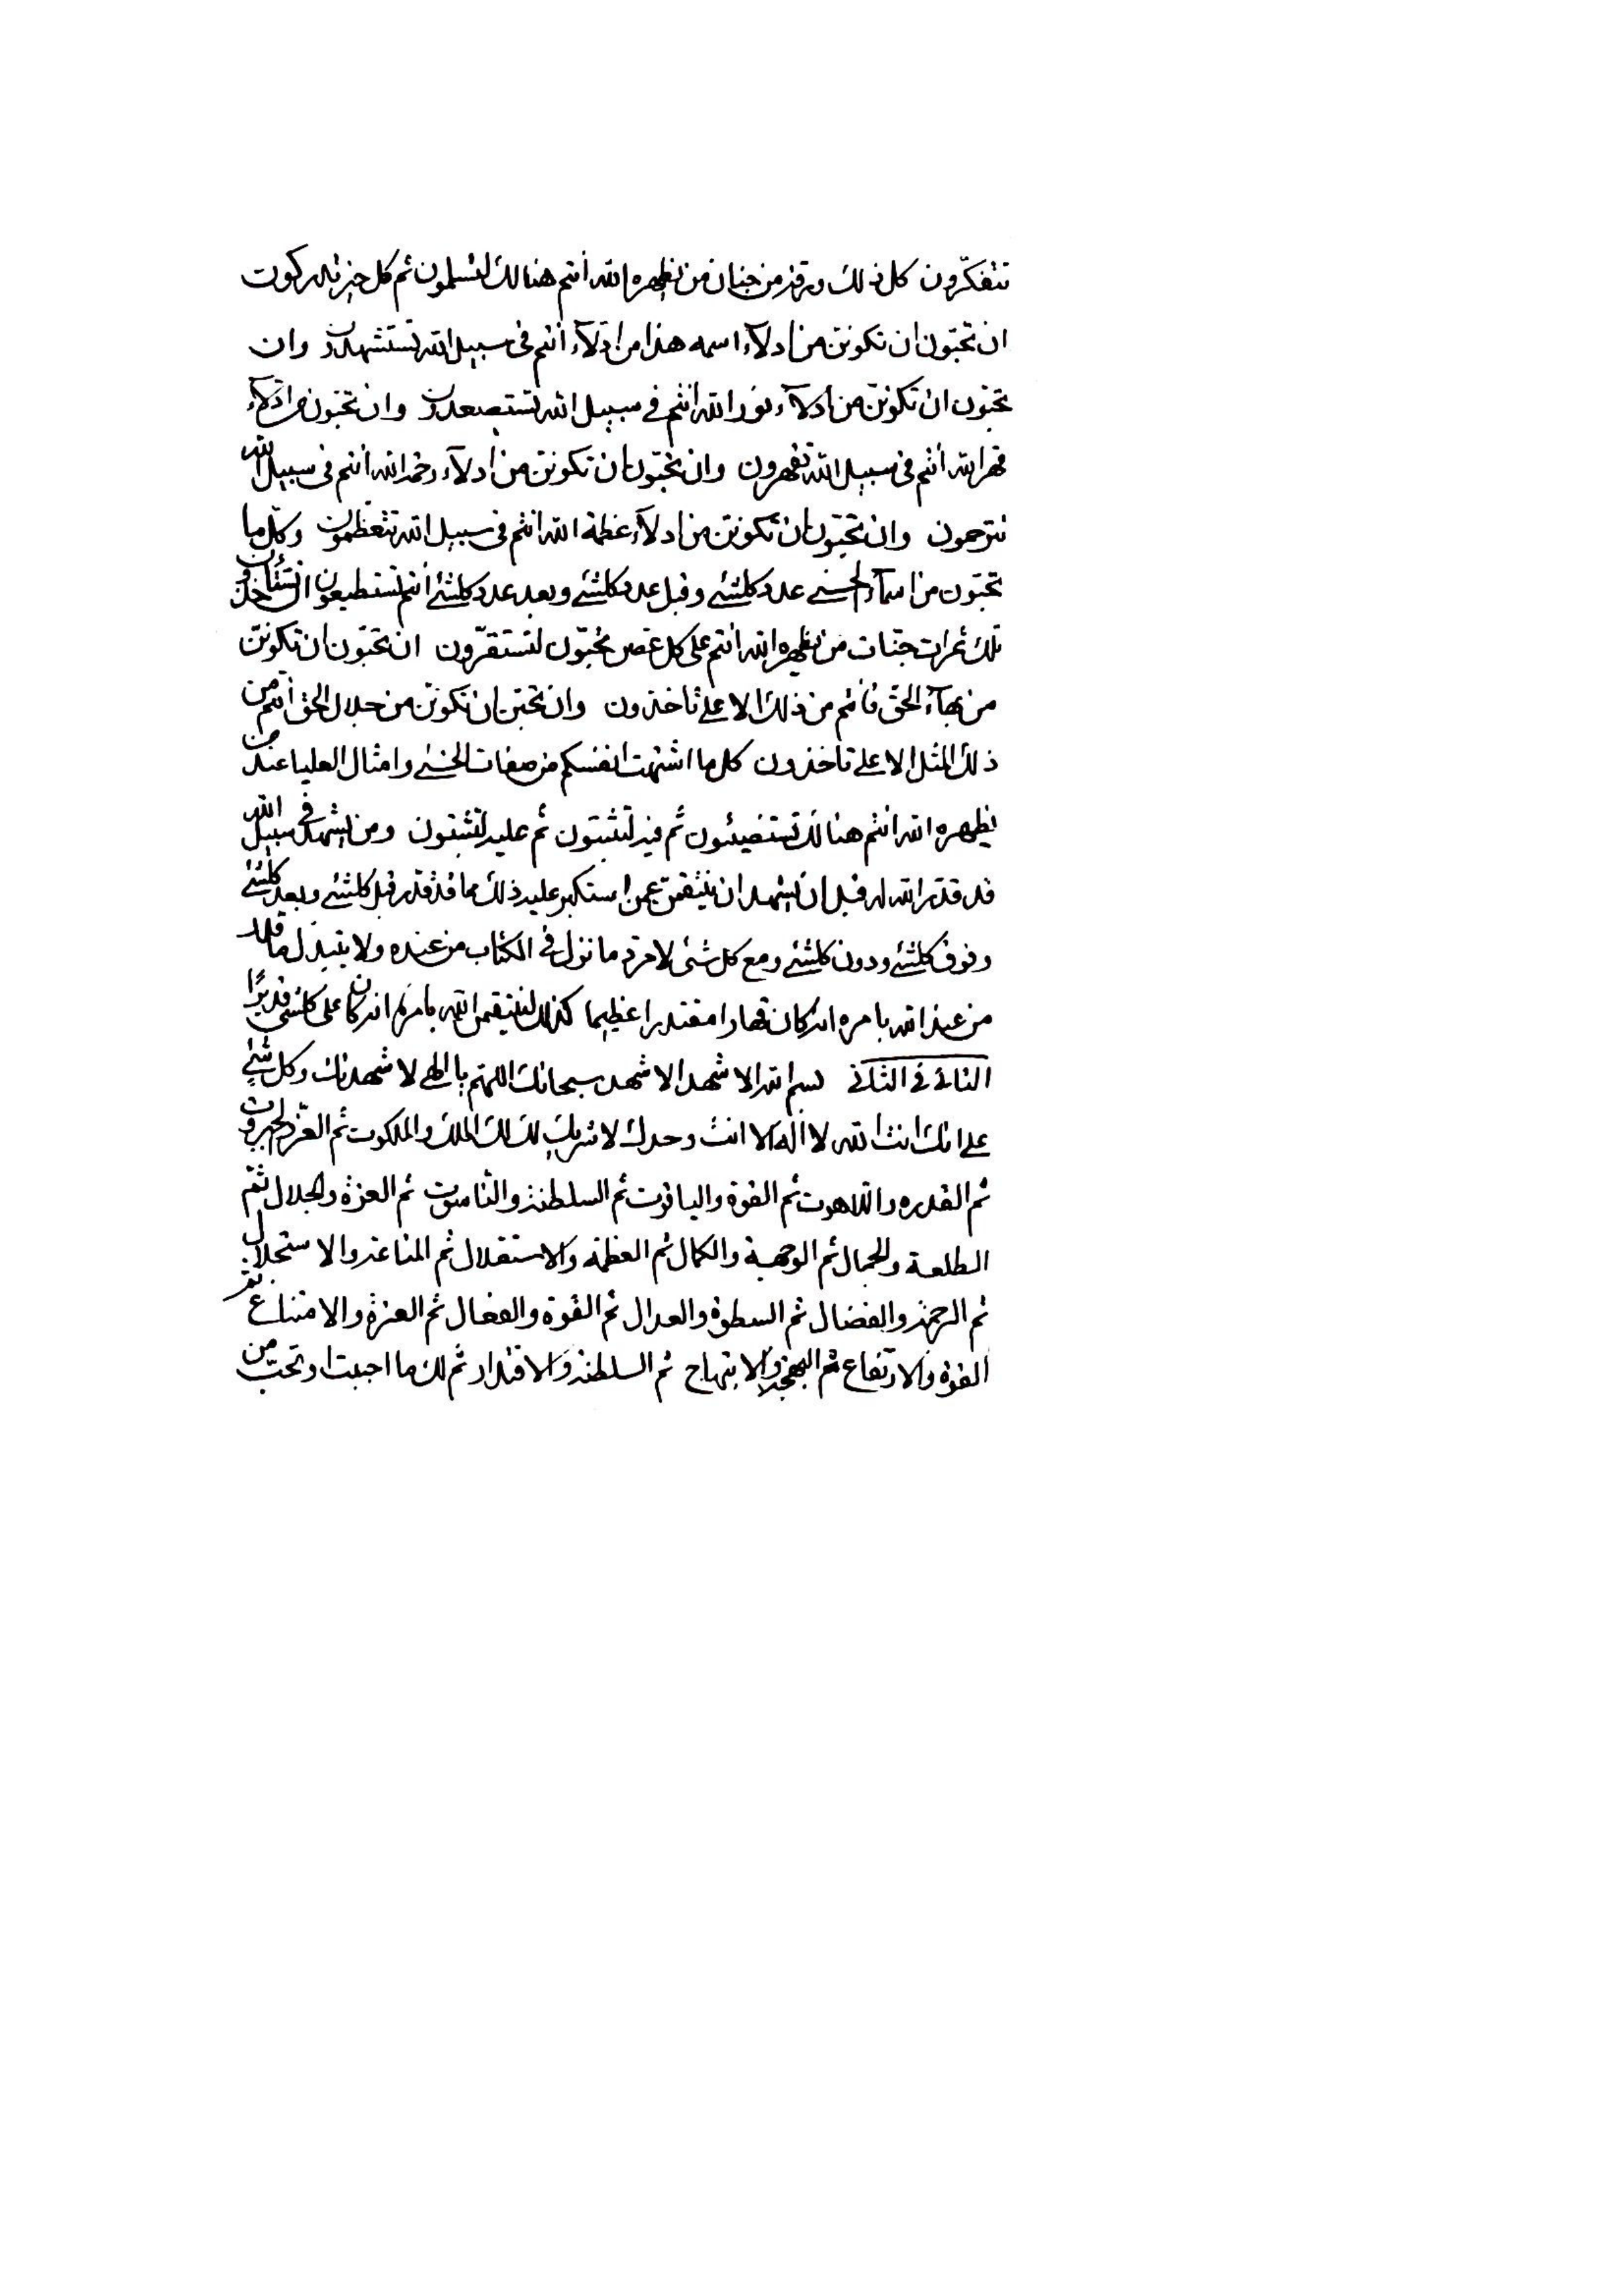 تتفكّرون كل ذلك ورقة من جنان من يظهره الله أنتم هنالك لتسلمون ثم كل خير تدركون
ان تحبّون ان تكوننّ من ادلآء اسمه هذا من ادلآء أنتم فى سبيل الله تستشهدون وان
تحبّون ان تكوننّ من ادلآء نور الله انتم فى سبيل الله تستصعدون وان تحبّون من ادلآء
قهر الله أنتم فى سبيل الله تقهرون وان تحبّون ان تكوننّ من ادلآء رحمة الله أنتم فى سبيل الله
تترحمون وان تحبّون ان تكوننّ من ادلآء عظمة الله انتم فى سبيل الله تتعظمون وكل ما
تحبّون من اسمآء الحسنى عدد كلشئ وقبل عدد كلشئ وبعد عدد كلشئ أنتم لتستطيعون ان
تلك ثمرات جنّات من يظهره الله انتم على كل غصن تحبّون لتستقرّون ان تحبّون ان تكوننّ
من بهآء الحق فأنتم من ذلك الاعلى تاخذون وان تحبّن ان تكوننّ من جلال الحق أنتم من
ذلك المثل الاعلى تاخذون كل ما اشتهت انفسكم من صفات الحسنى وامثال العليا عند من
يظهره الله انتم هنالك تستضيئون ثم فيه لتثبتون ثم عليه لتثبتون ومن يشهد فى سبيل الله
قد قدّر الله له قبل ان يشهد ان ينتقمنّ عمن استكبر عليه ذلك مما قد قدّر قبل كلشئ وبعد كلشئ
وفوق كلشئ ودون كلشئ ومع كل شئ لا مردّ ما نزل فى الكتاب من عنده ولا يتبدّل ما قدد
من عند الله بامره انه كان قهارا مقتدرا عظيما كذلك لينتقمن الله بامره انه كان على كلشئ قديرًا
الثانى فى الثانى بسم الله الاشهد الاشهد سبحانك اللهمّ يا الهى لاشهدنك وكل شئ
على انك انت الله لا اله الا انت وحدك لا شريك لك لك الملك والملكوت ثم العزّ والجبروت
ثم القدره واللاهوت ثم القوة والياقوت ثم السلطنة والناسوت ثم العزة والجلال ثمّ
الطلعة والجمال ثم الوجهة والكمال ثم العظمة والاستقلال ثم المناعة والاستجلال
ثم الرحمة والفضال ثم السطوة والعدال ثم القوة والفعال ثم العزة والامتناع ثمّ
القوة والارتفاع ثم البهجة والابتهاج ثم السلطنة والاقتدار ثم لك ما احببت او تحبّ من